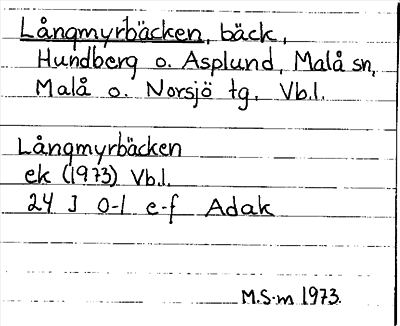 Långmyrbäcken, bäck,
Hundberg o. Asplund, Malå sn,
Malå o. Norsjö tg. Vb.l.
Långmyrbäcken
ek (1973) Vb.l.
24 J 0-1 e-f Adak
M.S:m 1973.